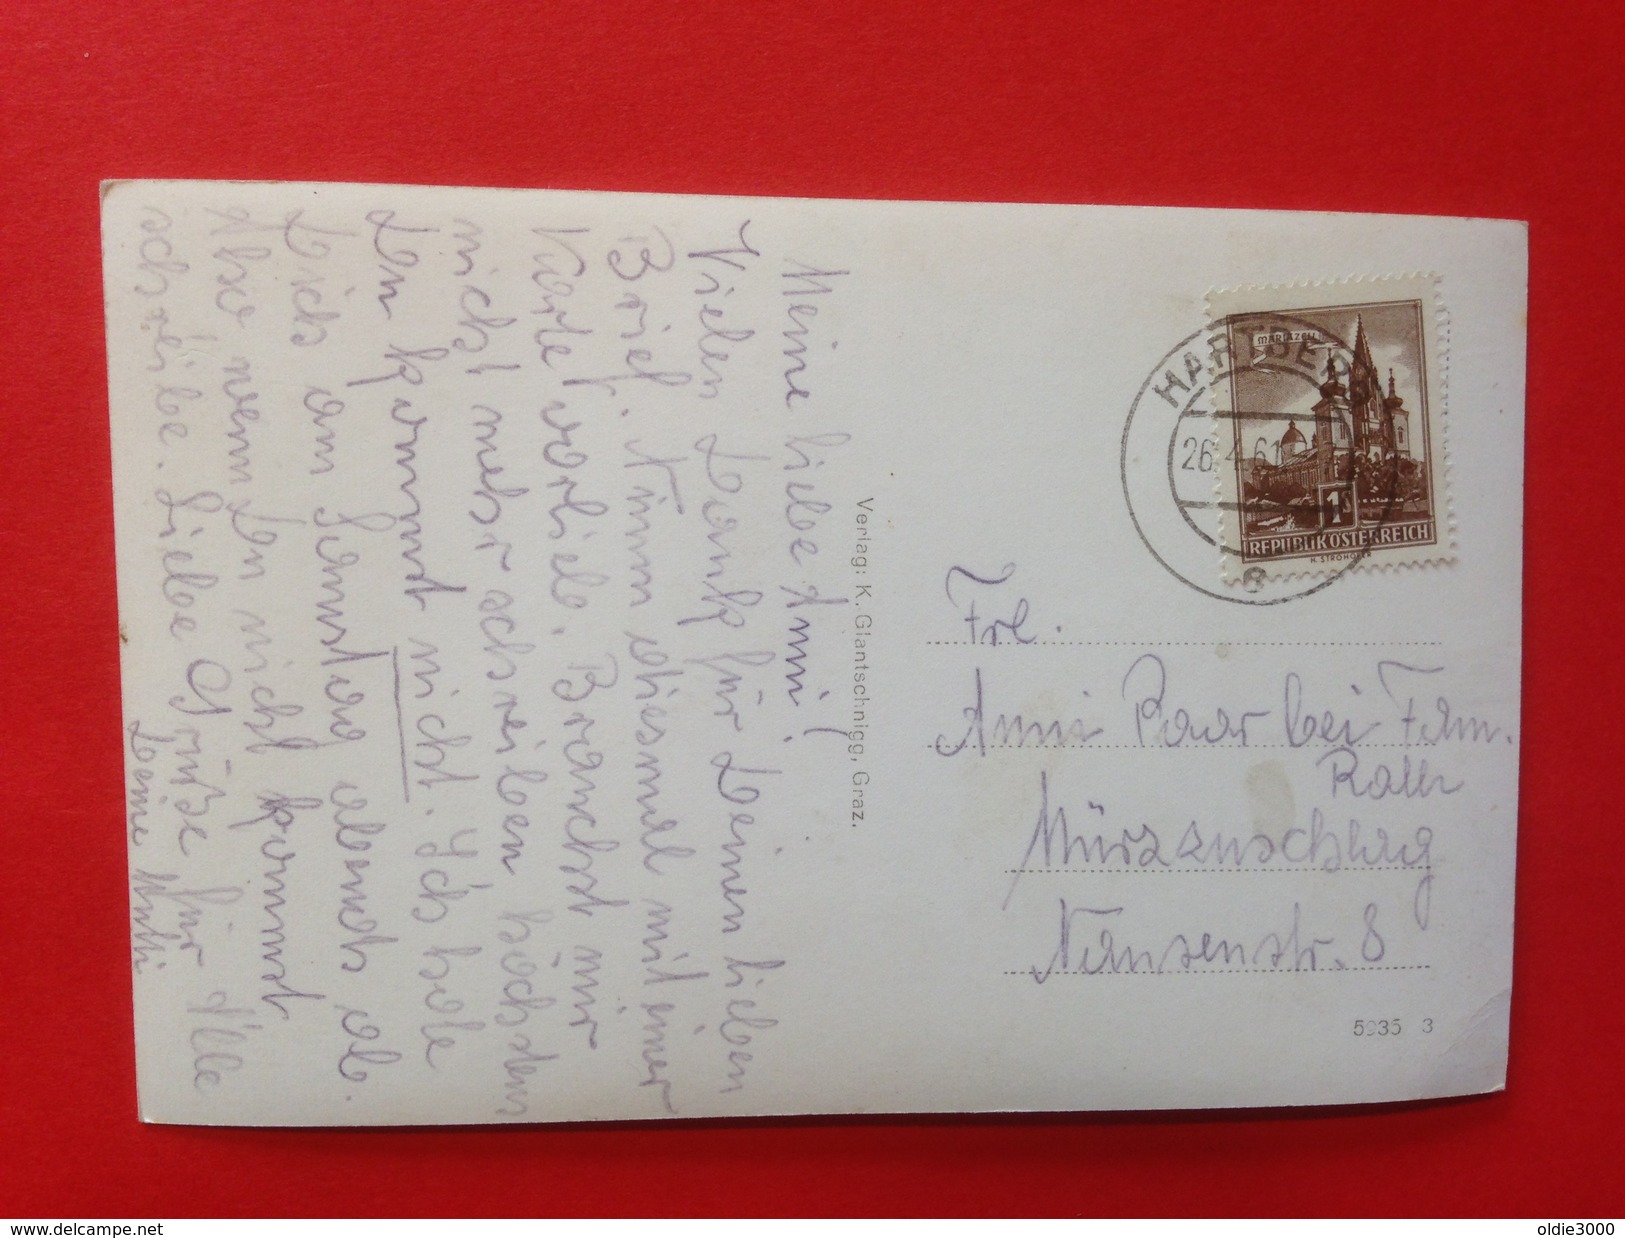 Meine liebe Anni!
Vielen Dank für Deinen lieben
Brief. Nimm diesmal mit einer
Karte vorlieb. Brauchst mir
nicht mehr schreiben höchstens
Du kommst nicht. Ich hole
Dich am Samstag abends ab.
Also wenn Du nicht kommst
schreibe. Liebe Grüße für Alle
Deine Mutti
Verlag: K. Glantschnigg, Graz.
MARIAZELL
HARTBERG
26.4.61
1S
REPUBLIK ÖSTERREICH
8
Frl.
Anni Paar bei Fam.
Mürzzuschlag
Nansenstr. 8
5935 3
delcampe.net
oldie3000